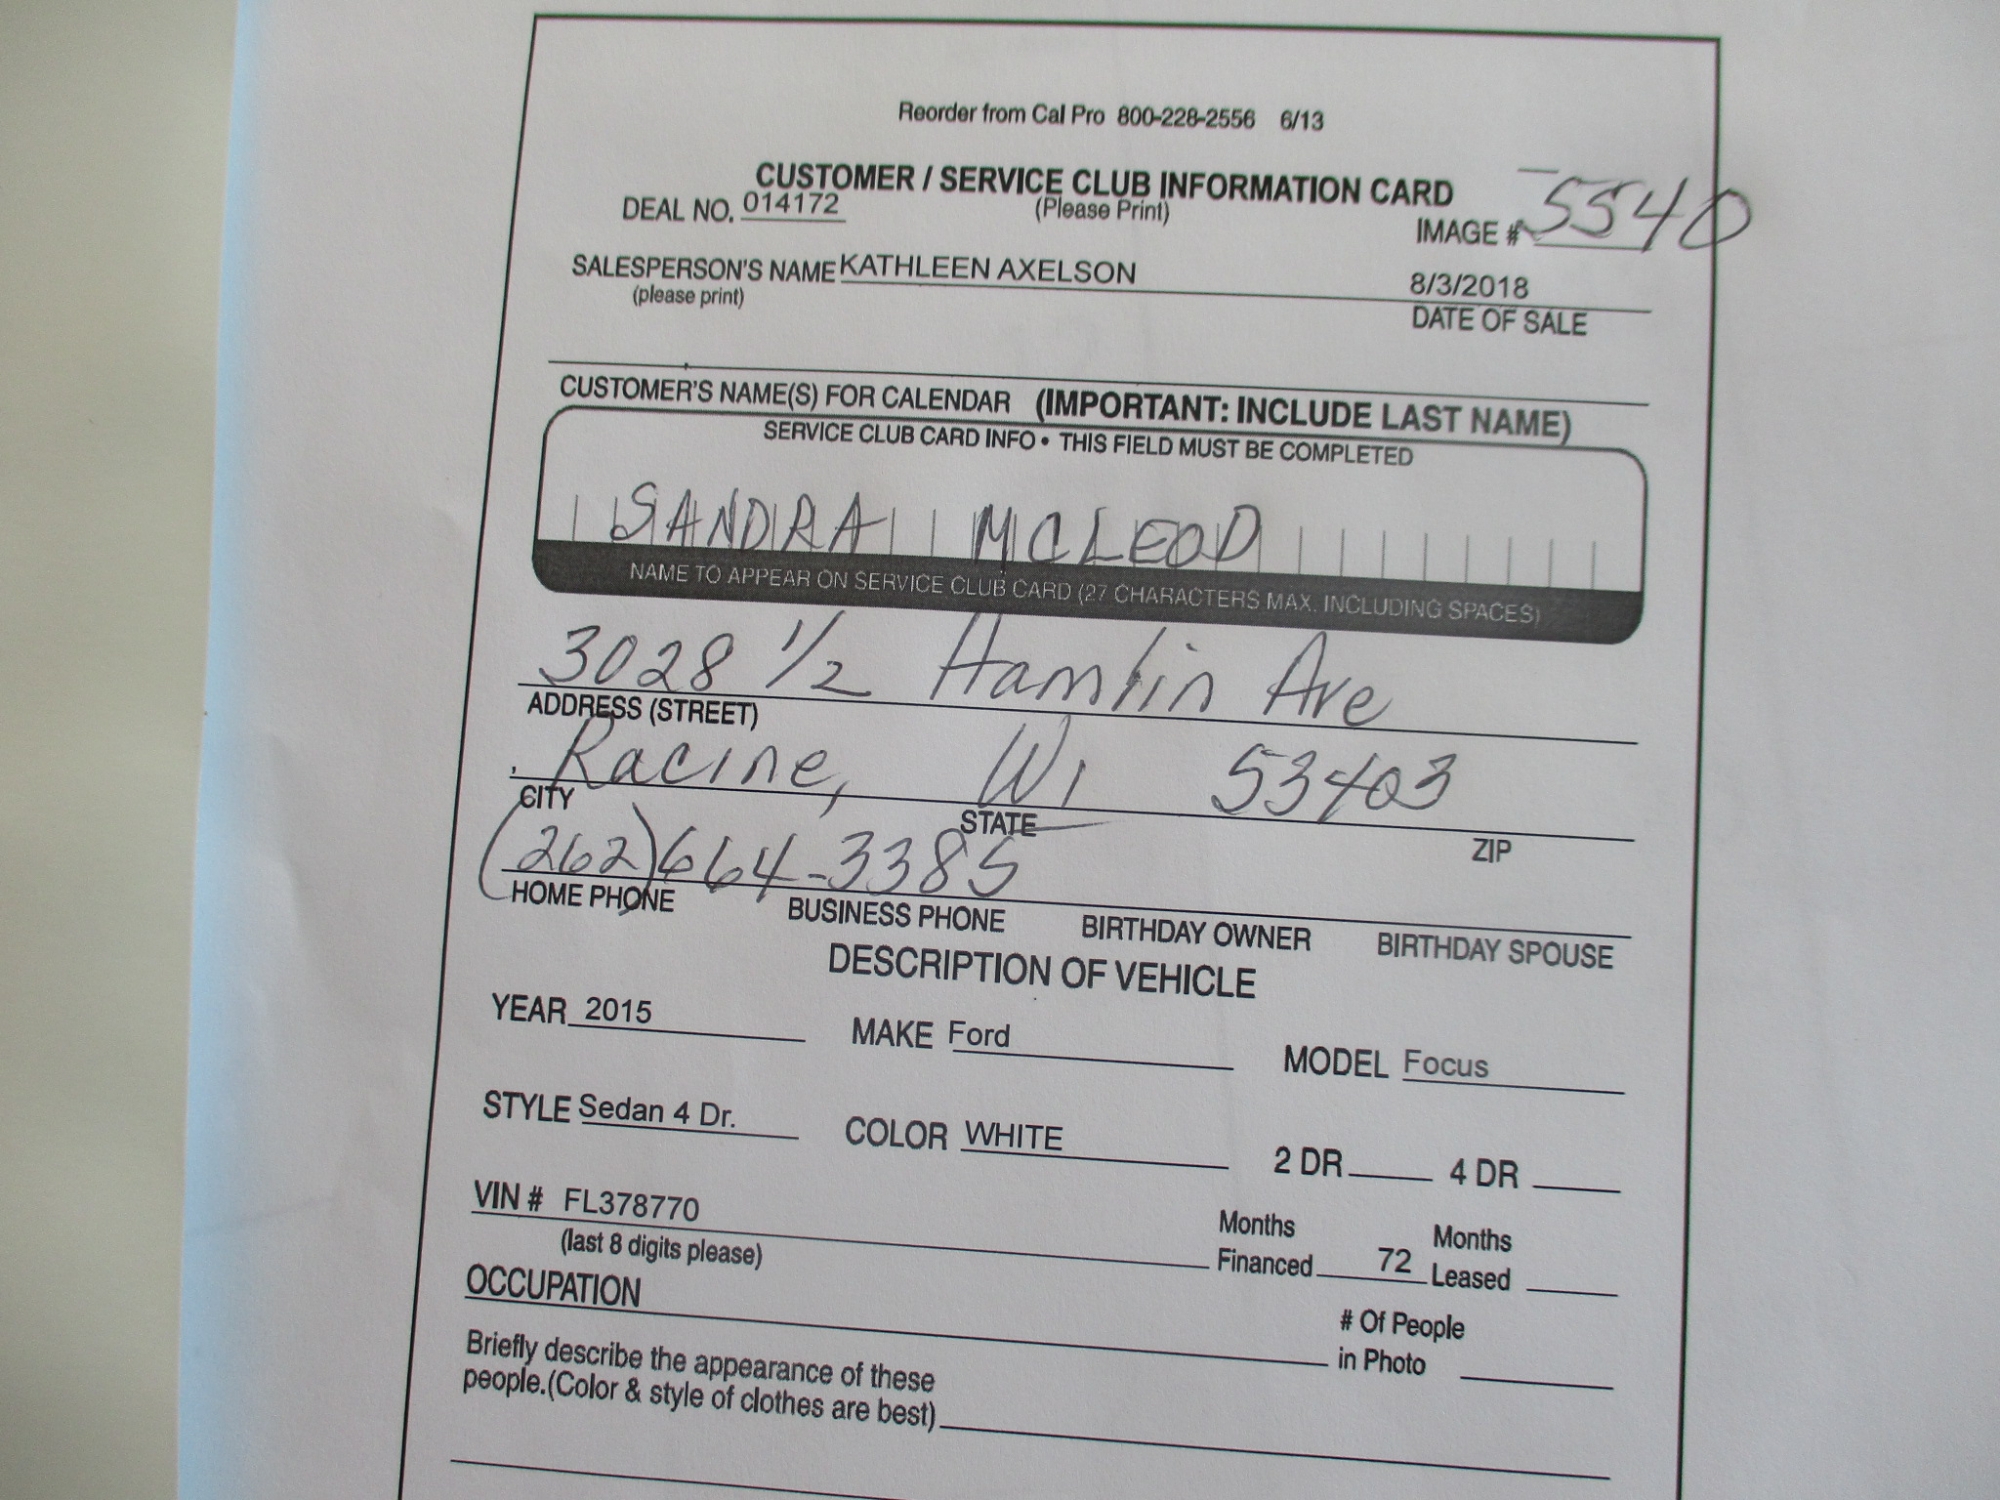 Reorder from Cal Pro 800-228-2556 6/13
CUSTOMER / SERVICE CLUB INFORMATION CARD
DEAL NO. 014172 (Please Print) IMAGE # 5540
SALESPERSON'S NAME KATHLEEN AXELSON 8/3/2018
(please print) DATE OF SALE
CUSTOMER'S NAME(S) FOR CALENDAR (IMPORTANT: INCLUDE LAST NAME)
SERVICE CLUB CARD INFO • THIS FIELD MUST BE COMPLETED
SANDRA MCLEOD
NAME TO APPEAR ON SERVICE CLUB CARD (27 CHARACTERS MAX. INCLUDING SPACES)
3028 1/2 Hamlin Ave
ADDRESS (STREET)
Racine, Wi 53403
CITY STATE ZIP
(262) 664-3385
HOME PHONE BUSINESS PHONE BIRTHDAY OWNER BIRTHDAY SPOUSE
DESCRIPTION OF VEHICLE
YEAR 2015 MAKE Ford MODEL Focus
STYLE Sedan 4 Dr. COLOR WHITE 2 DR 4 DR
VIN # FL378770 Months Financed 72 Months Leased
(last 8 digits please)
OCCUPATION # Of People in Photo
Briefly describe the appearance of these
people.(Color & style of clothes are best)